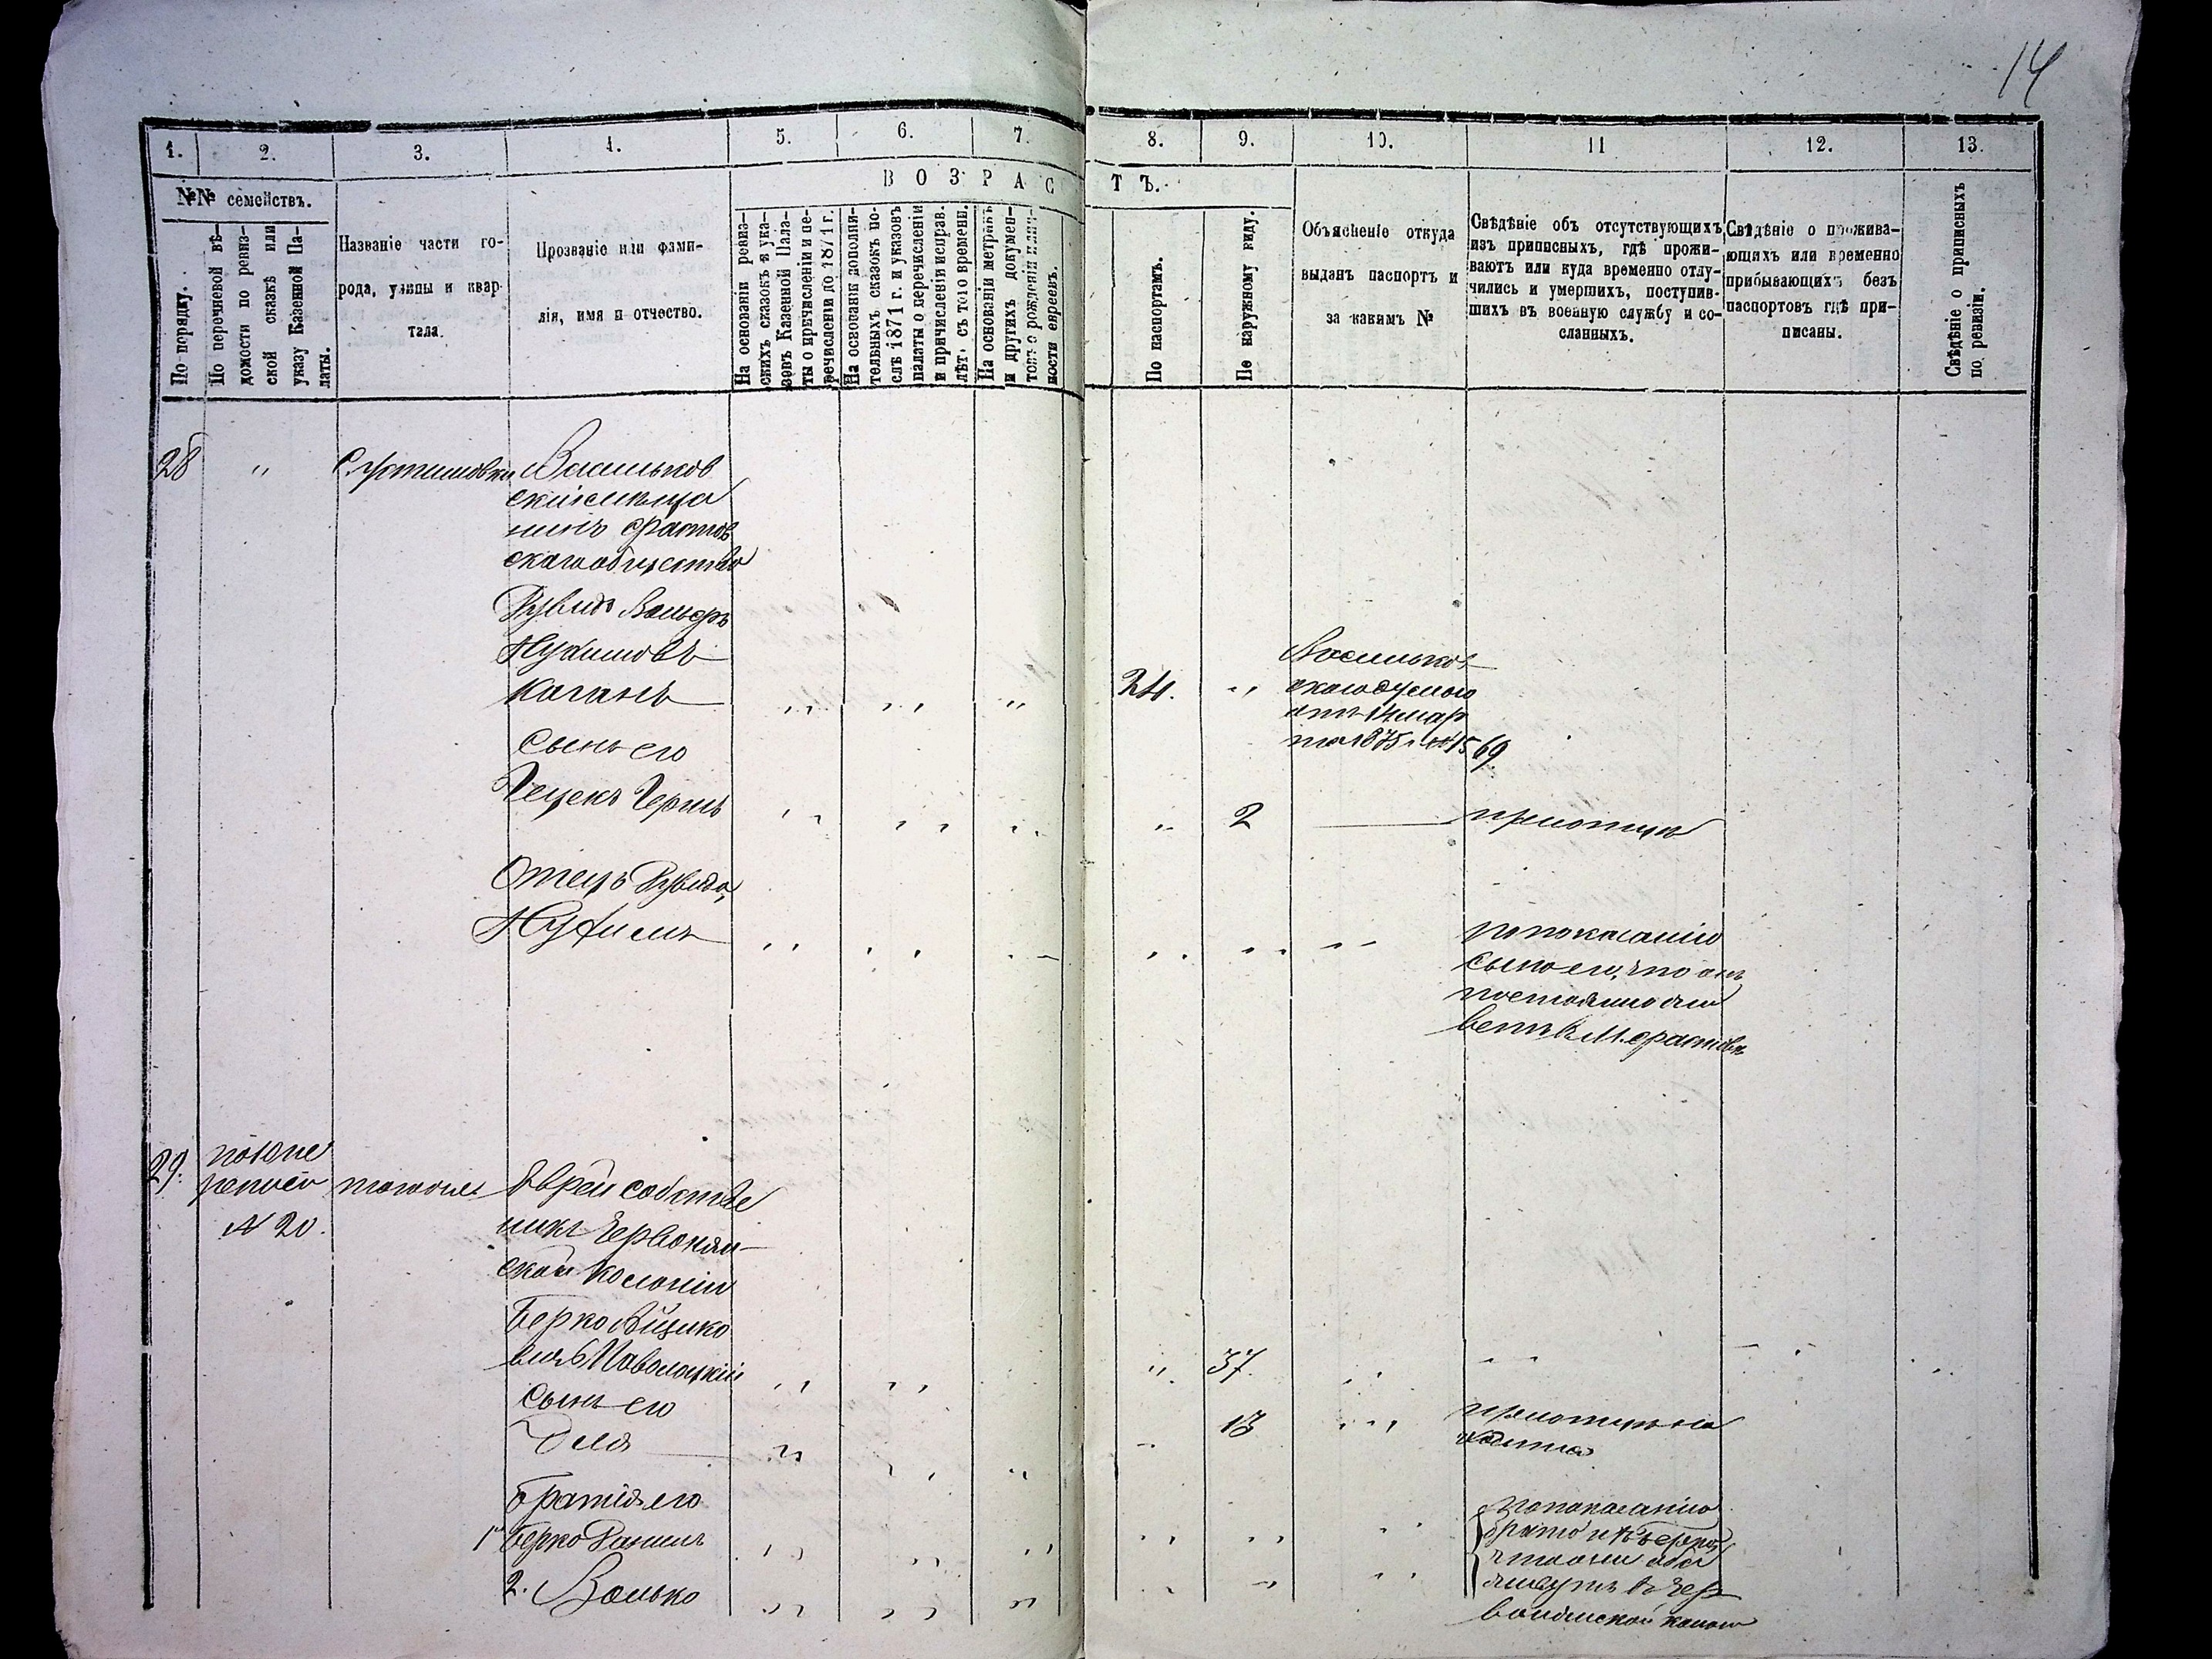 14
1.
2.
3.
4.
5.
6.
7.
8.
9.
10.
11
12.
13.
№№ семействъ.
В О З Р А С Т Ъ.
По порядку.
По перечневой вѣ-
домости по ревиз-
ской сказкѣ или
указу Казенной Па-
латы.
Названіе части го-
рода, улицы и квар-
тала.
Прозваніе или фами-
лія, имя и отчество.
На основаніи ревиз-
скихъ сказокъ и ука-
зовъ Казенной Пала-
ты о причисленіи и пе-
речисленіи до 1871 г.
На основаніи дополни-
тельныхъ сказокъ по-
слѣ 1871 г. и указовъ
палаты о перечисленіи
и причисленіи исправ.
лѣт. съ того времени.
На основаніи метрикъ
и другихъ докумен-
товъ о рожденіи
ности евреевъ.
По паспортамъ.
По наружному виду.
Объясненіе откуда
выданъ паспортъ и
за какимъ №
Свѣдѣніе объ отсутствующихъ
изъ приписныхъ, гдѣ прожи-
ваютъ или куда временно отлу-
чились и умершихъ, поступив-
шихъ въ военную службу и со-
сланныхъ.
Свѣдѣніе о прожива-
ющихъ или временно
прибывающихъ безъ
паспортовъ гдѣ при-
писаны.
Свѣдѣніе о приписныхъ
по ревизіи.
28 " С. Устимовка Васильков
скій мѣща
нинъ Фастов
скаго общества
Рувидъ Вольфъ
Нухимовъ
Каганъ " " " 24. "
Васильков
ской думою
отъ 14 мар
та 1875 г. №1569
Сынъ его
Гецекъ Гершъ " " " " 2 — пріютиля
Отецъ Рувида,
Нухимъ " " " " " "
по показанію
сына его, что онъ
постоянно жи
ветъ в М. Фастовѣ
29. по
речней
№ 20.
тоже Еврей собстве
никъ Червонян-
ской колоніи
Берко Ицко
вичъ Паволоцкій " " " 37.
Сынъ его
" 13 " "
Братія его
1 Берко
2. Волько " " "
по показанію
брата ихъ Берка,
что они оба
живутъ в Чер
вонянской колон